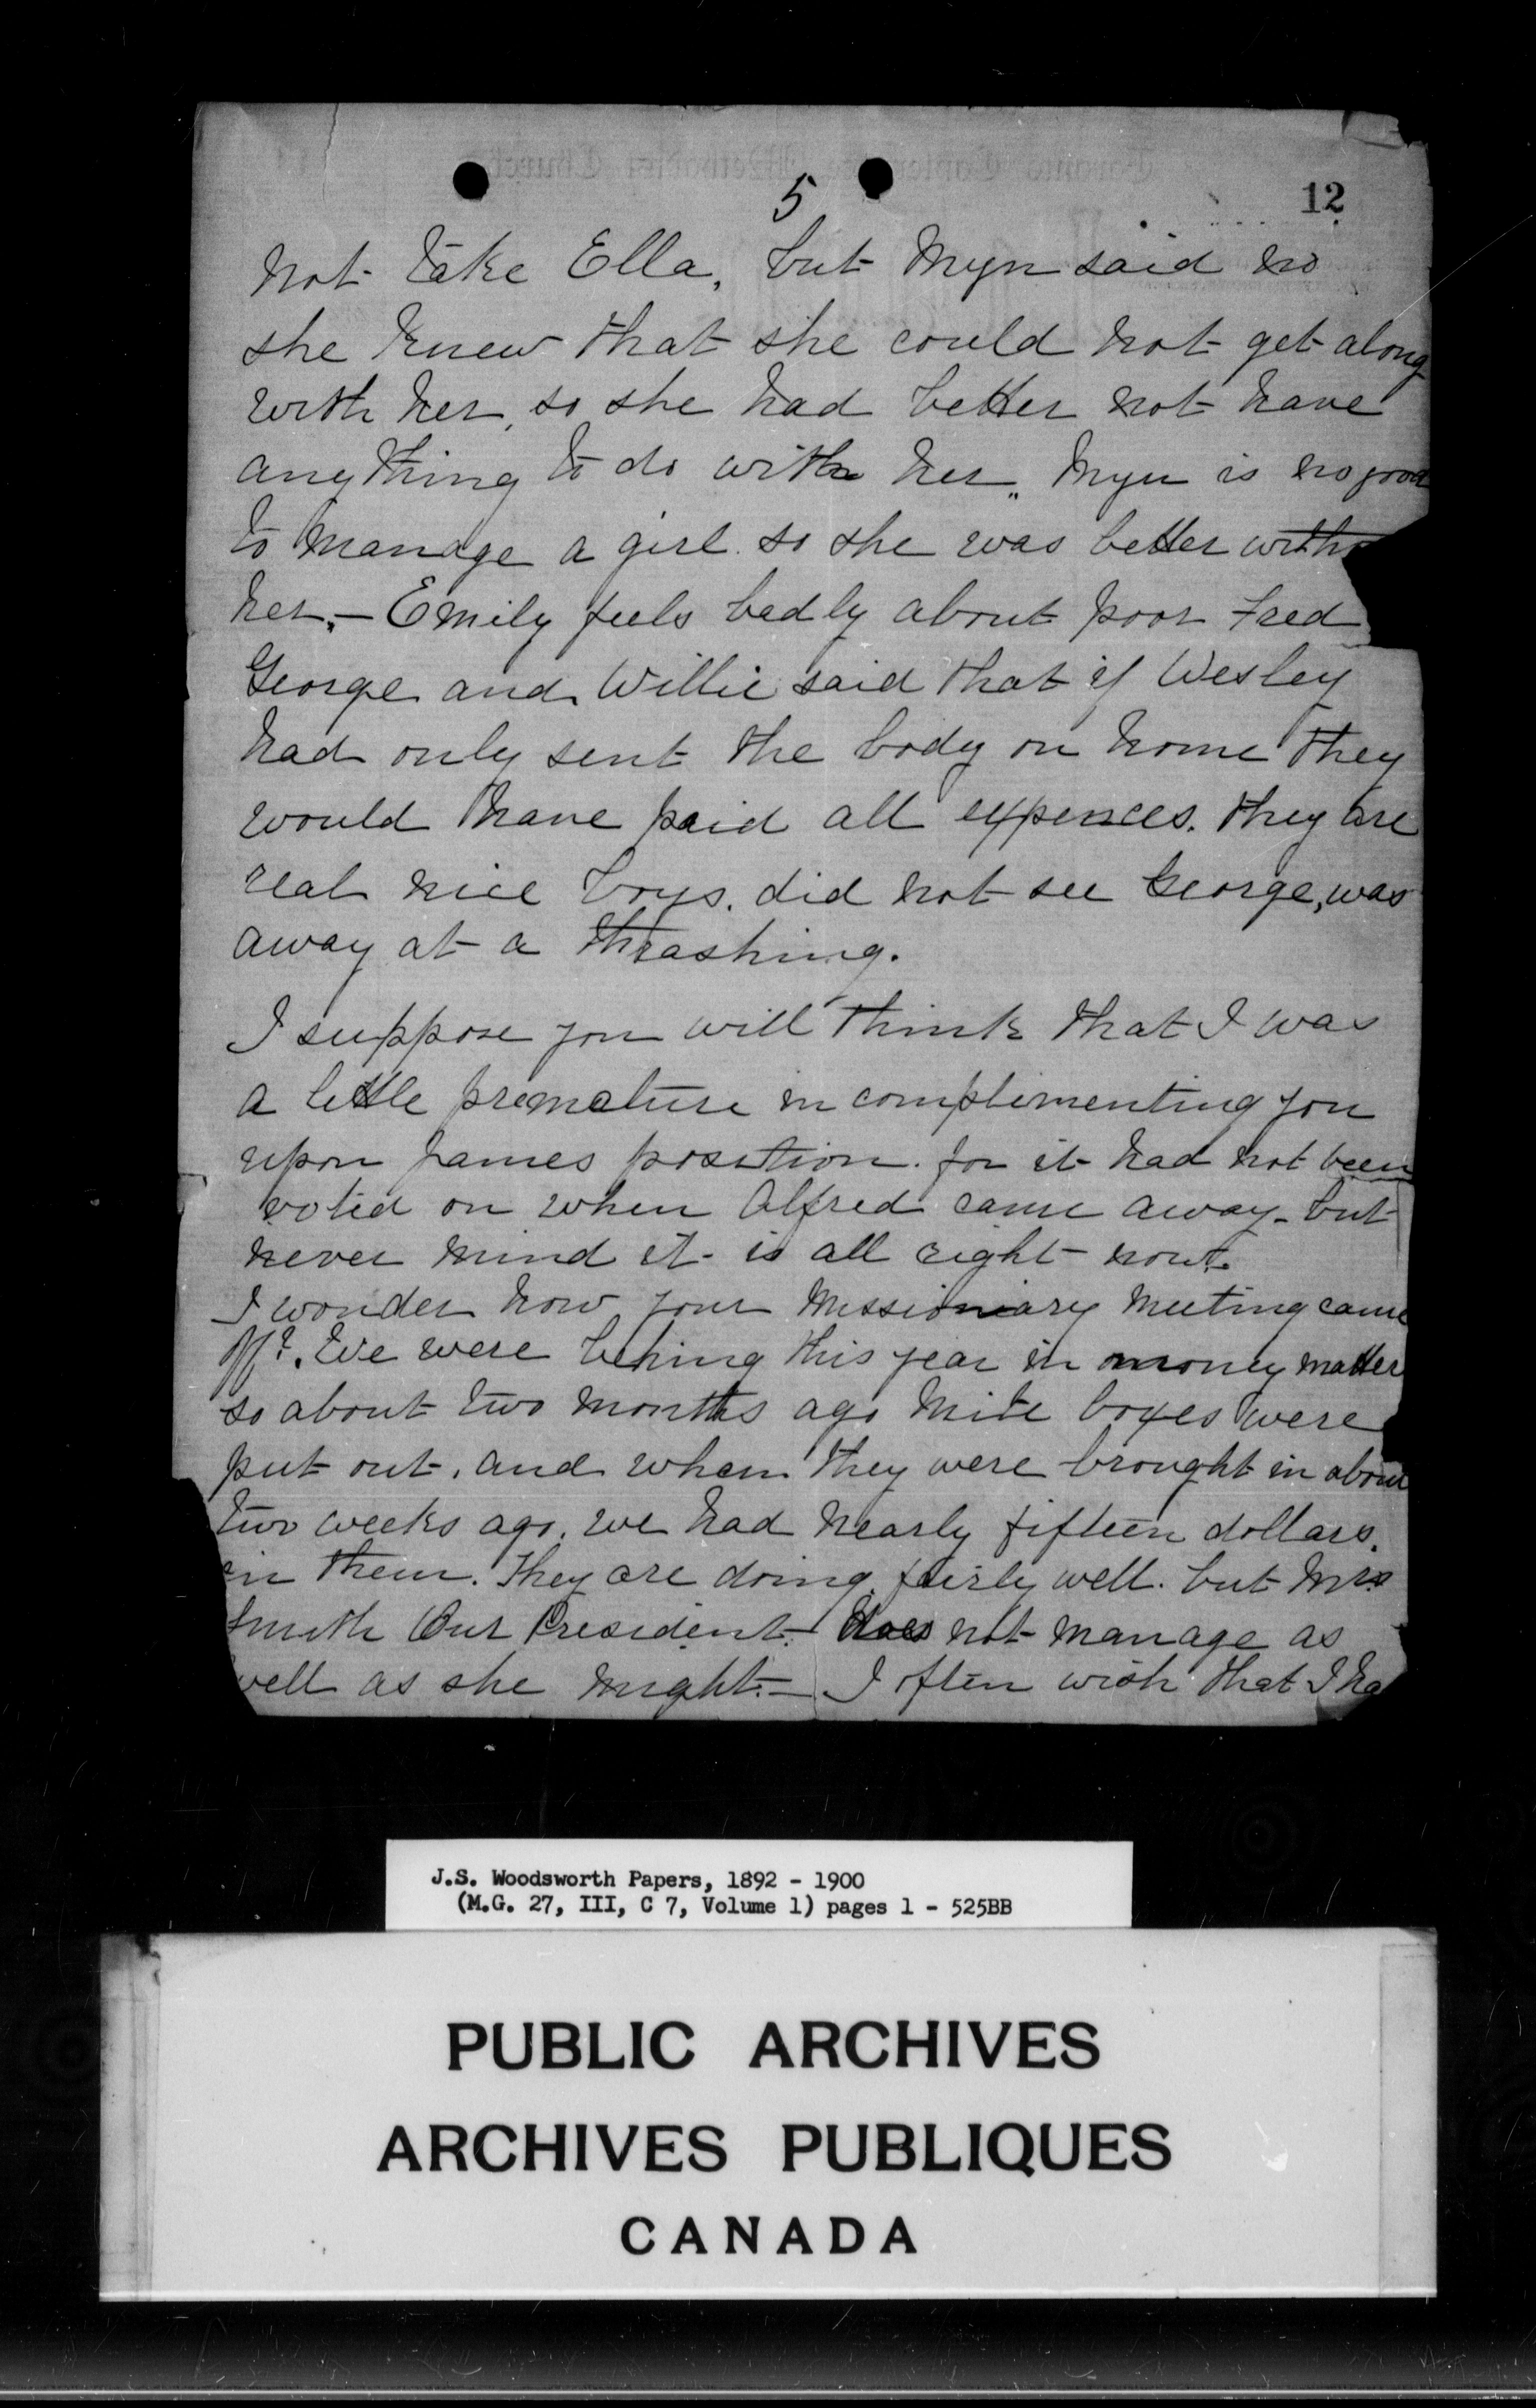 5
12
not take Ella, but Myn said no
she knew that she could not get along
with her, so she had better not have
anything to do with her. Myn is no good
to manage a girl. so she was better witho
her. — Emily feels badly about poor Fred
George and Willie said that if Wesley
had only sent the body on home they
would have paid all expences. they are
real nice boys. did not see George, was
away at a thrashing.
I suppose you will think that I was
a little premature in complimenting you
upon James position. for it had not been
voted on when Alfred came away - but
never mind it is all right now.
I wonder how your Missionary Meeting came
off?. We were behing this year in money matter
so about two months ago Mite boxes were
put out. and when they were brought in about
two weeks ago. we had nearly fifteen dollars.
in them. They are doing fairly well. but Mrs
Smith Our President. does not manage as
well as she might. — I often wish that I ha
J.S. Woodsworth Papers, 1892 - 1900
(M.G. 27, III, C 7, Volume 1) pages 1 - 525BB
PUBLIC ARCHIVES
ARCHIVES PUBLIQUES
CANADA